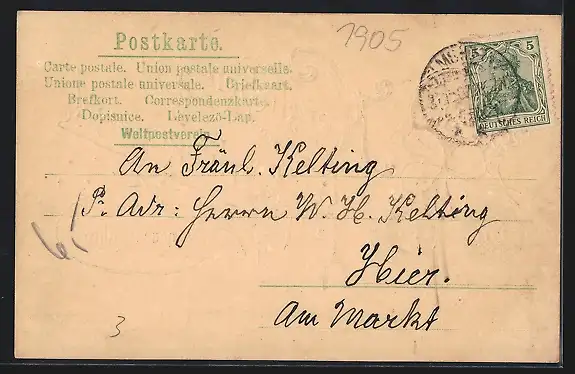 Postkarte.
1905
Carte postale. Union postale universelle.
Unione postale universale. Briefkaart.
Brefkort. Correspondenzkarte.
Dopisnice. Levelező-Lap.
Weltpostverein.
5
DEUTSCHES REICH
An Fräul. Kelting
Pr. Adr: Herrn W. H. Kelting
Hier.
Am Markt
3